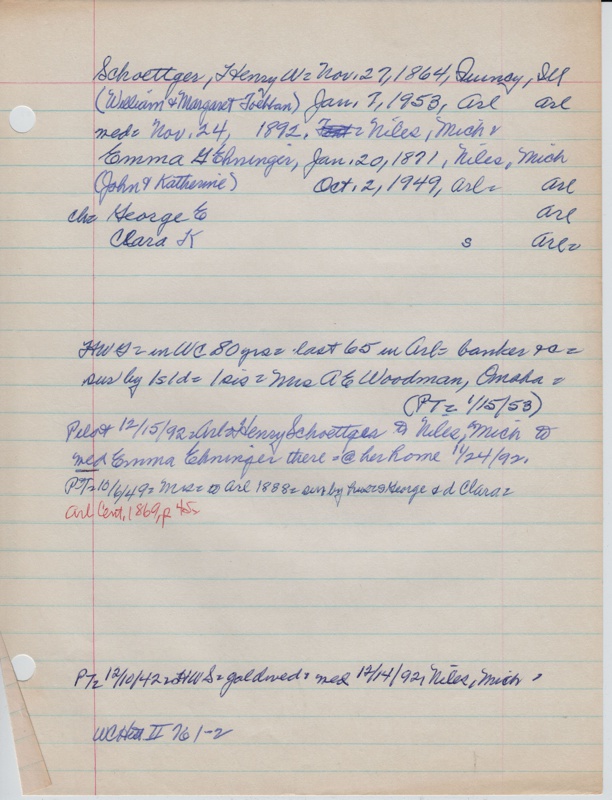 Schoettger, Henry W = Nov. 27, 1864, Quincy, Ill
(William & Margaret) Jan. 7, 1953, Arl Arl
med = Nov. 24, 1892. = Niles, Mich
Emma G Ehninger, Jan. 20, 1871, Niles, Mich
(John & Katherine) Oct. 2, 1949, Arl = Arl
ch = George E Arl
Clara K s Arl =
HWS = in WC 80 yrs = last 65 in Arl = banker =
sur by 1s 1d = 1 sis = Mrs A E Woodman, Omaha =
(PT = 1/15/53)
Pilot 12/15/92 = Arl = Henry Schoettger to Niles, Mich to
med Emma Ehninger there = @ her home 11/24/92.
PT = 10/6/49 = Mrs = to Arl 1888 = sur by George & d Clara =
Arl Cent, 1869, p 45
PT = 12/10/42 = HWS = gold wed = med 12/14/92, Niles, Mich =
WC Hist II 761-2